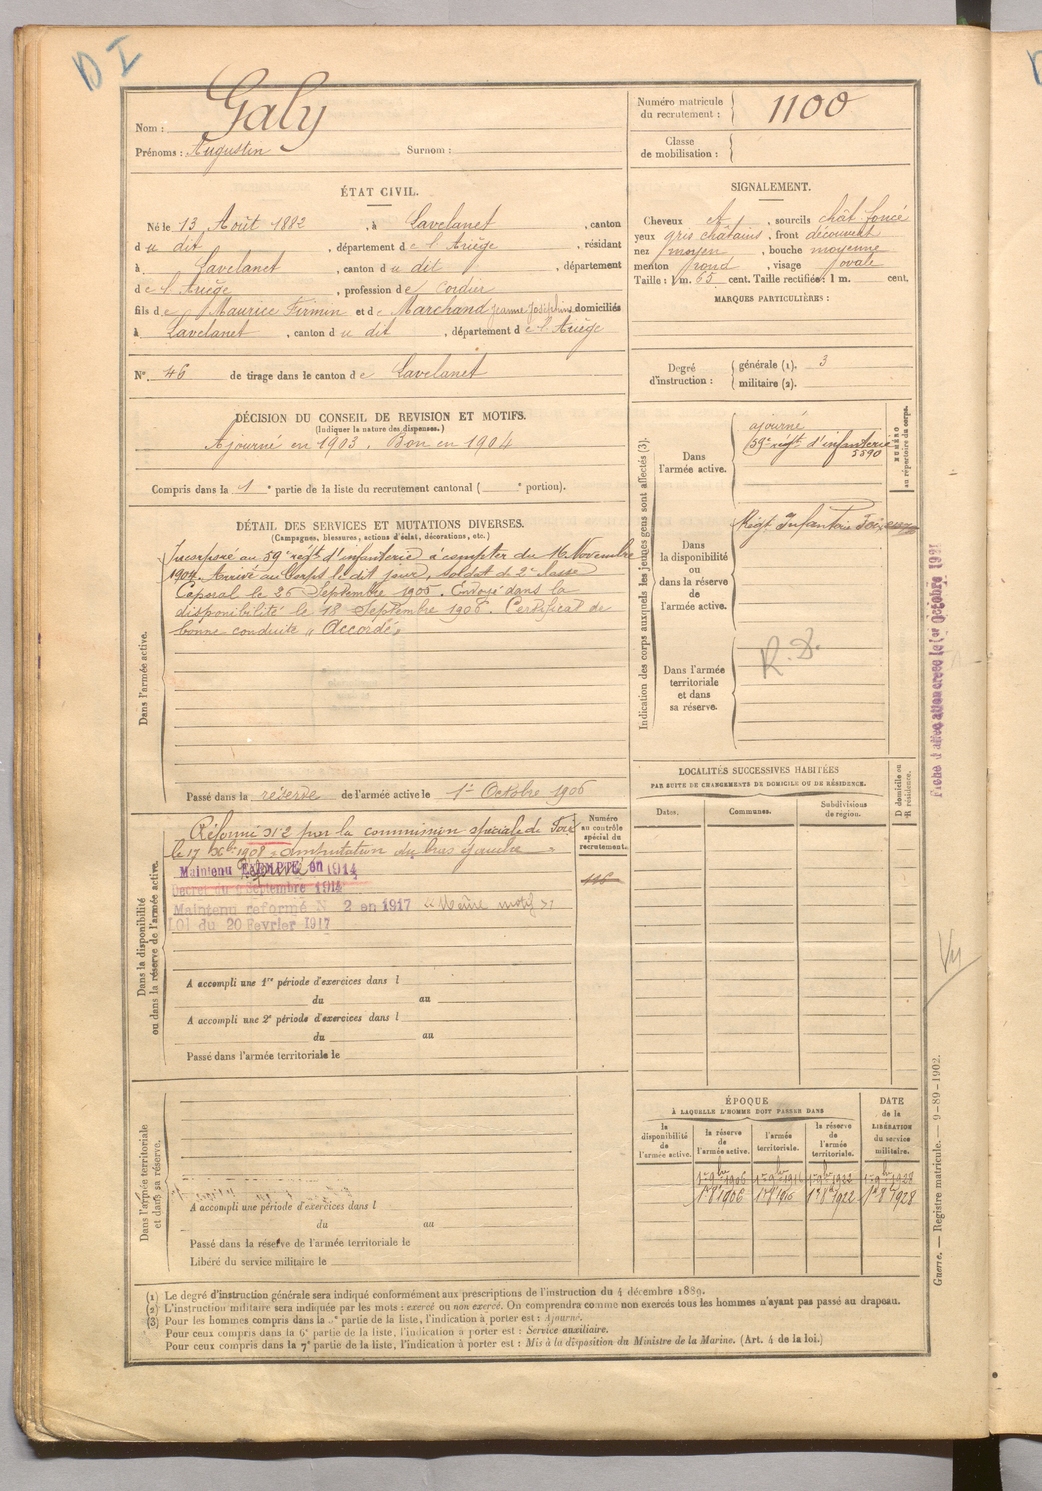 D I
Nom : Galy
Prénoms : Augustin Surnom :
Numéro matricule du recrutement : 1100
Classe de mobilisation :
ÉTAT CIVIL.
Né le 13 Août 1882, à Lavelanet, canton
du dit, département de l'Ariège, résidant
à Lavelanet, canton du dit, département
de l'Ariège, profession de Cordier
fils de Maurice Firmin et de Marchand Jeanne Joséphine domiciliés
à Lavelanet, canton du dit, département de l'Ariège
N°. 46 de tirage dans le canton de Lavelanet
SIGNALEMENT.
Cheveux et, sourcils chât. foncé
yeux gris châtains, front découvert
nez moyen, bouche moyenne
menton rond, visage ovale
Taille : 1 m. 65 cent. Taille rectifiée : 1 m. cent.
MARQUES PARTICULIÈRES :
Degré d'instruction : générale (1). 3
militaire (2).
DÉCISION DU CONSEIL DE REVISION ET MOTIFS.
(Indiquer la nature des dispenses.)
Ajourné en 1903. Bon en 1904
Compris dans la 1e partie de la liste du recrutement cantonal ( e portion).
DÉTAIL DES SERVICES ET MUTATIONS DIVERSES.
(Campagnes, blessures, actions d'éclat, décorations, etc.)
Dans l'armée active.
Incorporé au 59e régt d'infanterie à compter du 16 Novembre
1904. Arrivé au Corps le dit jour, soldat de 2e classe
Caporal le 26 Septembre 1905. Envoyé dans la
disponibilité le 18 Septembre 1906. Certificat de
bonne conduite « Accordé »
Passé dans la réserve de l'armée active le 1er Octobre 1906
Indication des corps auxquels les jeunes gens sont affectés (3).
NUMÉRO au répertoire du corps.
Dans l'armée active.
ajourné
59e régt d'infanterie
5590
Dans la disponibilité ou dans la réserve de l'armée active.
Régt Infanterie Foix
Dans l'armée territoriale et dans sa réserve.
R. D.
Fiche d'affectation créée le 1er Octobre 1921
LOCALITÉS SUCCESSIVES HABITÉES
PAR SUITE DE CHANGEMENTS DE DOMICILE OU DE RÉSIDENCE.
Dates. Communes. Subdivisions de région. D domicile ou R résidence.
Dans la disponibilité ou dans la réserve de l'armée active.
Réformé N°2 par la commission spéciale de Foix
le 17 Xbre 1908 « amputation du bras gauche »
Maintenu EXEMPTÉ en 1914
Réformé
Décret du 9 Septembre 1914
Maintenu réformé N° 2 en 1917 « Même motif »
LOI du 20 Février 1917
Numéro au contrôle spécial du recrutement.
A accompli une 1re période d'exercices dans l
du au
A accompli une 2e période d'exercices dans l
du au
Passé dans l'armée territoriale le
Vu
Dans l'armée territoriale et dans sa réserve.
A accompli une période d'exercices dans l
du au
Passé dans la réserve de l'armée territoriale le
Libéré du service militaire le
ÉPOQUE
À LAQUELLE L'HOMME DOIT PASSER DANS
DATE de la LIBÉRATION du service militaire.
la disponibilité de l'armée active. la réserve de l'armée active. l'armée territoriale. la réserve de l'armée territoriale.
1er 9bre 1906 1er 9bre 1916 1er 9bre 1922 1er 9bre 1928
1er 8bre 1906 1er 8bre 1916 1er 8bre 1922 1er 8bre 1928
Guerre. — Registre matricule. — 9-89-1902.
(1) Le degré d'instruction générale sera indiqué conformément aux prescriptions de l'instruction du 4 décembre 1889.
(2) L'instruction militaire sera indiquée par les mots : exercé ou non exercé. On comprendra comme non exercés tous les hommes n'ayant pas passé au drapeau.
(3) Pour les hommes compris dans la e partie de la liste, l'indication à porter est : Ajourné.
Pour ceux compris dans la 6e partie de la liste, l'indication à porter est : Service auxiliaire.
Pour ceux compris dans la 7e partie de la liste, l'indication à porter est : Mis à la disposition du Ministre de la Marine. (Art. 4 de la loi.)